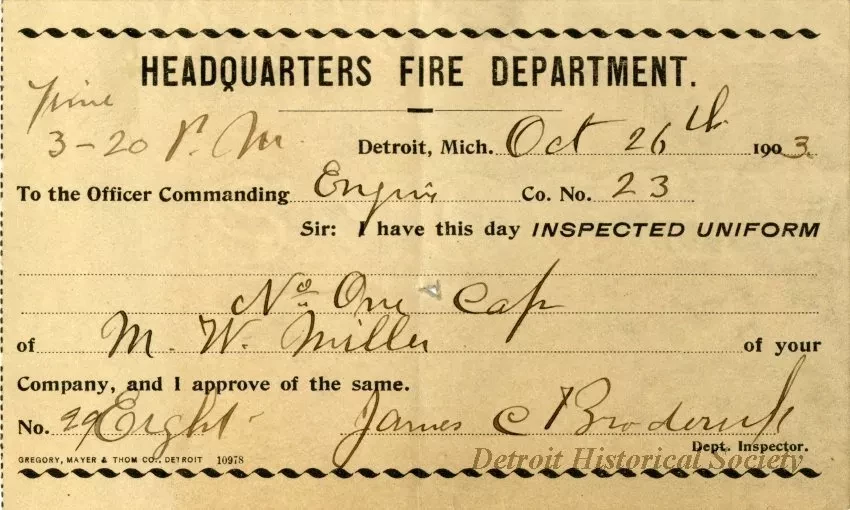 HEADQUARTERS FIRE DEPARTMENT.
Time
3-20 P. M
Detroit, Mich. Oct 26th 1903.
To the Officer Commanding Engine Co. No. 23
Sir: I have this day INSPECTED UNIFORM
No One Cap
of M. W. Miller of your
Company, and I approve of the same.
No. Eight James C Broderick
Dept. Inspector.
GREGORY, MAYER & THOM CO., DETROIT 10978
Detroit Historical Society